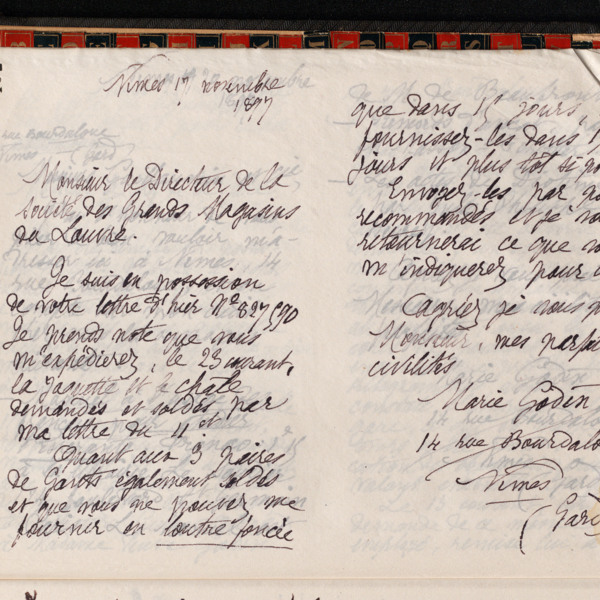 Nimes 17 novembre
1897
Monsieur le Directeur de la
Société des Grands Magasins
du Louvre.
Je suis en possession
de votre lettre d'hier Nº 827590
Je prends note que vous
m'expédierez, le 23 courant,
la Jaquette et le châle
demandés et soldés par
ma lettre du 11 ct
Quant aux 3 paires
de Gants également soldés
et que vous ne pouvez me
fournir en loutre foncée
que dans 15 jours,
fournissez-les dans 15
jours et plus tôt si
Envoyez-les par
recommandés et je
retournerai ce que
m'indiquerez pour
Agréez je vous
Monsieur, mes
civilités
Marie Godin
14 rue Bourdaloue
Nimes
(Gard